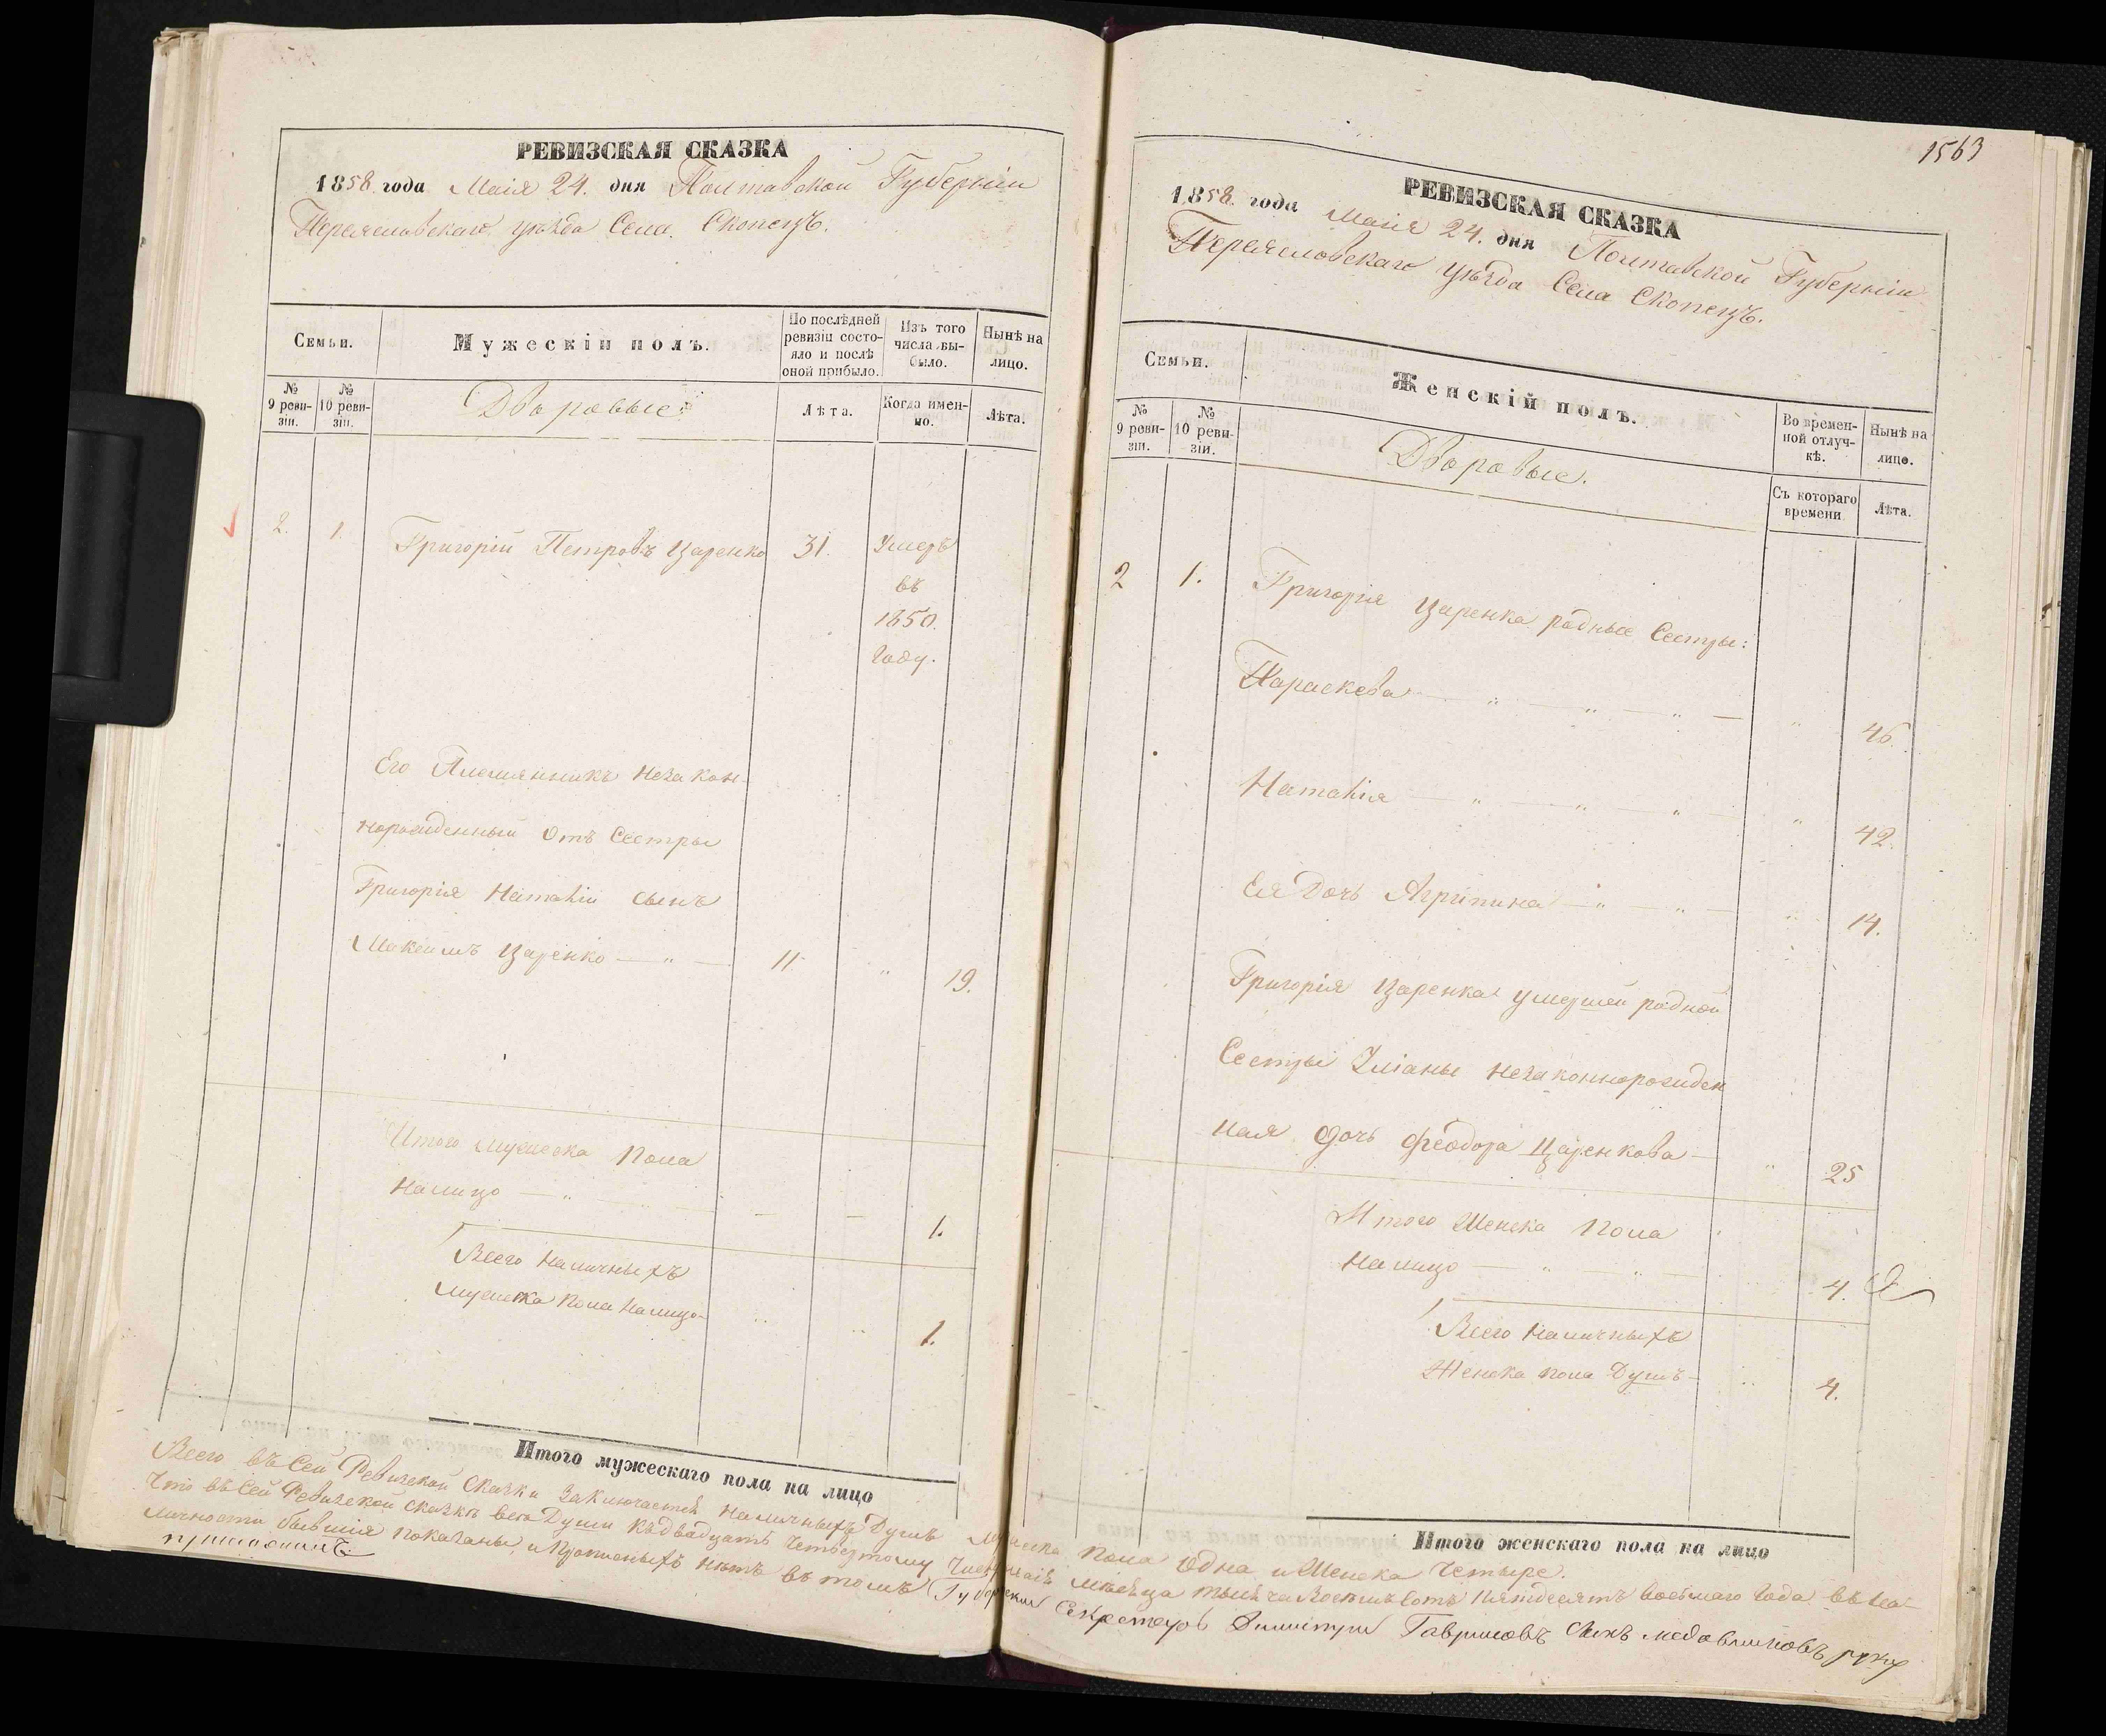 РЕВИЗСКАЯ СКАЗКА
1858 года Маія 24. дня Полтавской Губерніи
Переяславскаго уѣзда Села Скопецъ.
Семьи.
Мужескій полъ.
По послѣдней ревизіи состо-
яло и послѣ
оной прибыло.
Изъ того
числа вы-
было.
Нынѣ на
лицо.
№
9 реви-
зіи.
№
10 реви-
зіи.
Дворовые:
Лѣта.
Когда имен-
но.
Лѣта.
2. 1. Григорій Петровъ Царенко 31. Умеръ
въ
1850.
Году.
Его Племянникъ незакон-
норожденный отъ Сестры
Григорія Наталіи сынъ
Максимъ Царенко — „ — 11. „ 19.
Итого мужеска Пола
налицо — „ — — 1.
Всего наличныхъ
мужеска пола налицо 1.
Итого мужескаго пола на лицо
1563
РЕВИЗСКАЯ СКАЗКА
1858. года Маія 24. дня Полтавской Губерніи
Переясловскаго уѣзда Села Скопецъ.
Семьи.
Женскій полъ.
Во времен-
ной отлуч-
кѣ.
Нынѣ на
лице.
№
9 реви-
зіи.
№
10 реви-
зіи.
Дворовые.
Съ котораго
времени
Лѣта.
2 1. Григорія Царенка родные Сестры:
Параскева — „ — „ — „ — „ 46.
Наталія — „ — „ — „ — „ 42.
Ея Дочь Агрипина — „ — „ — „ 14.
Григорія Царенка умершей родной
Сестры Уліаны незаконнорожден
ная дочь Феодора Царенкова — „ 25
Итого Женска Пола
налицо — „ — „ — 4.
Всего наличныхъ
Женска пола Душъ — 4.
Итого женскаго пола на лицо
Всего въ Сей Ревизской Сказки заключается наличныхъ Душъ мужеска пола одна, и Женска четыре.
Что въ Сей Ревизской сказкѣ все Души къ двадцать четвертому числу Маія мѣсяца тысяча Восемь сотъ пятдесятъ восьмаго Года въ на-
личности бывшія показаны, и прописныхъ нѣтъ въ томъ Губернскій Секретарь Димитрій Гавриловъ Сынъ руку
приложилъ.